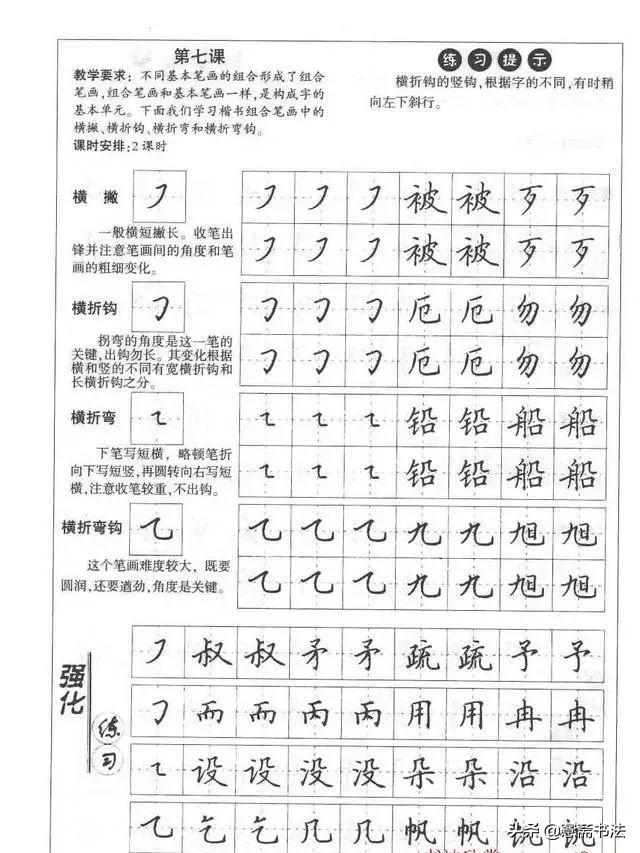 第七课
教学要求：不同基本笔画的组合形成了组合
笔画,组合笔画和基本笔画一样,是构成字的
基本单元。下面我们学习楷书组合笔画中的
横撇、横折钩、横折弯和横折弯钩。
课时安排:2课时
练习提示
横折钩的竖钩,根据字的不同,有时稍
向左下斜行。
横 撇
㇇ ㇇ ㇇ ㇇ 被 被 歹 歹
一般横短撇长。收笔出
锋并注意笔画间的角度和笔
画的粗细变化。
㇇ ㇇ ㇇ 被 被 歹 歹
横折钩
𠃌 𠃌 𠃌 𠃌 厄 厄 勿 勿
拐弯的角度是这一笔的
关键,出钩勿长。其变化根据
横和竖的不同有宽横折钩和
长横折钩之分。
𠃌 𠃌 𠃌 厄 厄 勿 勿
横折弯
㇍ ㇍ ㇍ ㇍ 铅 铅 船 船
下笔写短横，略顿笔折
向下写短竖,再圆转向右写短
横,注意收笔较重,不出钩。
㇍ ㇍ ㇍ 铅 铅 船 船
横折弯钩
乙 乙 乙 乙 九 九 旭 旭
这个笔画难度较大，既要
圆润,还要遒劲,角度是关键。
乙 乙 乙 九 九 旭 旭
强化
练习
㇇ 叔 叔 矛 矛 疏 疏 予 予
𠃌 而 而 丙 丙 用 用 冉 冉
㇍ 设 设 没 没 朵 朵 沿 沿
乙 乞 乞 凡 凡 帆 帆
头条@骞斋书法